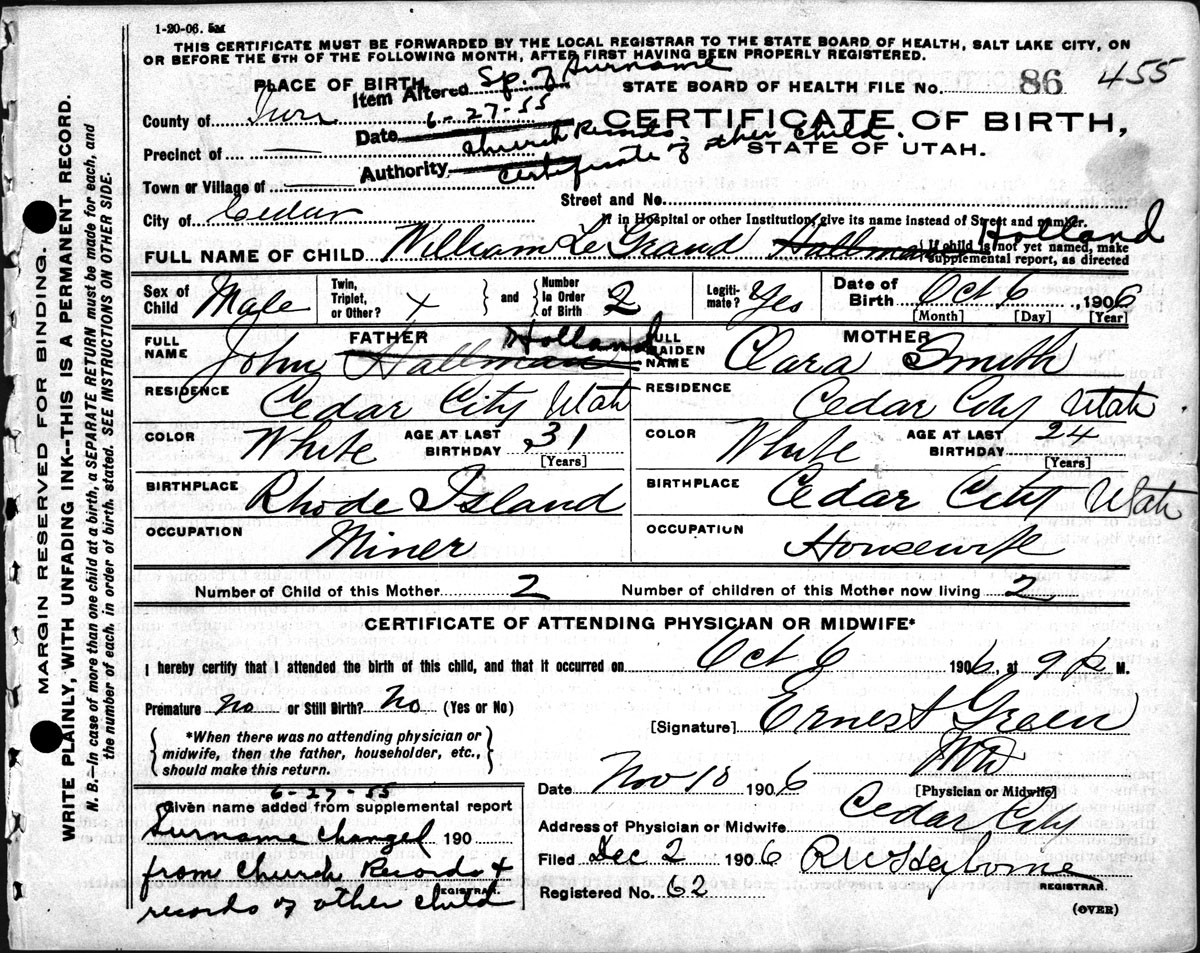 1-20-06. 5M
THIS CERTIFICATE MUST BE FORWARDED BY THE LOCAL REGISTRAR TO THE STATE BOARD OF HEALTH, SALT LAKE CITY, ON
OR BEFORE THE 5TH OF THE FOLLOWING MONTH, AFTER FIRST HAVING BEEN PROPERLY REGISTERED.
PLACE OF BIRTH
Item Altered Sp. of Surname
STATE BOARD OF HEALTH FILE No. 86 455
County of Iron
Date 6-27-55
CERTIFICATE OF BIRTH,
Precinct of —
Church Records
Authority Certificate of other child.
STATE OF UTAH.
Town or Village of —
Street and No.
City of Cedar
If in Hospital or other Institution, give its name instead of Street and number.
FULL NAME OF CHILD William LeGrand Hallman Holland
If child is not yet named, make supplemental report, as directed
Sex of Child Male
Twin, Triplet, or Other? +
and Number In Order of Birth 2
Legitimate? Yes
Date of Birth Oct 6, 1906
[Month] [Day] [Year]
FATHER
FULL NAME John Hallman Holland
MOTHER
FULL MAIDEN NAME Clara Smith
RESIDENCE Cedar City Utah
RESIDENCE Cedar City Utah
COLOR White AGE AT LAST BIRTHDAY 31 [Years]
COLOR White AGE AT LAST BIRTHDAY 24 [Years]
BIRTHPLACE Rhode Island
BIRTHPLACE Cedar City Utah
OCCUPATION Miner
OCCUPATION Housewife
Number of Child of this Mother 2 Number of children of this Mother now living 2
CERTIFICATE OF ATTENDING PHYSICIAN OR MIDWIFE*
I hereby certify that I attended the birth of this child, and that it occurred on Oct 6 1906, at 9 P M.
Premature no or Still Birth? no (Yes or No)
[Signature] Ernest Green
MD
[Physician or Midwife]
*When there was no attending physician or
midwife, then the father, householder, etc.,
should make this return.
Date Nov 10 1906
Address of Physician or Midwife Cedar City
Filed Dec 2 1906
REGISTRAR.
Registered No. 62
(OVER)
6-27-55
Given name added from supplemental report
Surname changed 190
from Church Records +
REGISTRAR.
records of other child
MARGIN RESERVED FOR BINDING.
WRITE PLAINLY, WITH UNFADING INK--THIS IS A PERMANENT RECORD.
N. B.—In case of more than one child at a birth, a SEPARATE RETURN must be made for each, and
the number of each, in order of birth, stated. SEE INSTRUCTIONS ON OTHER SIDE.